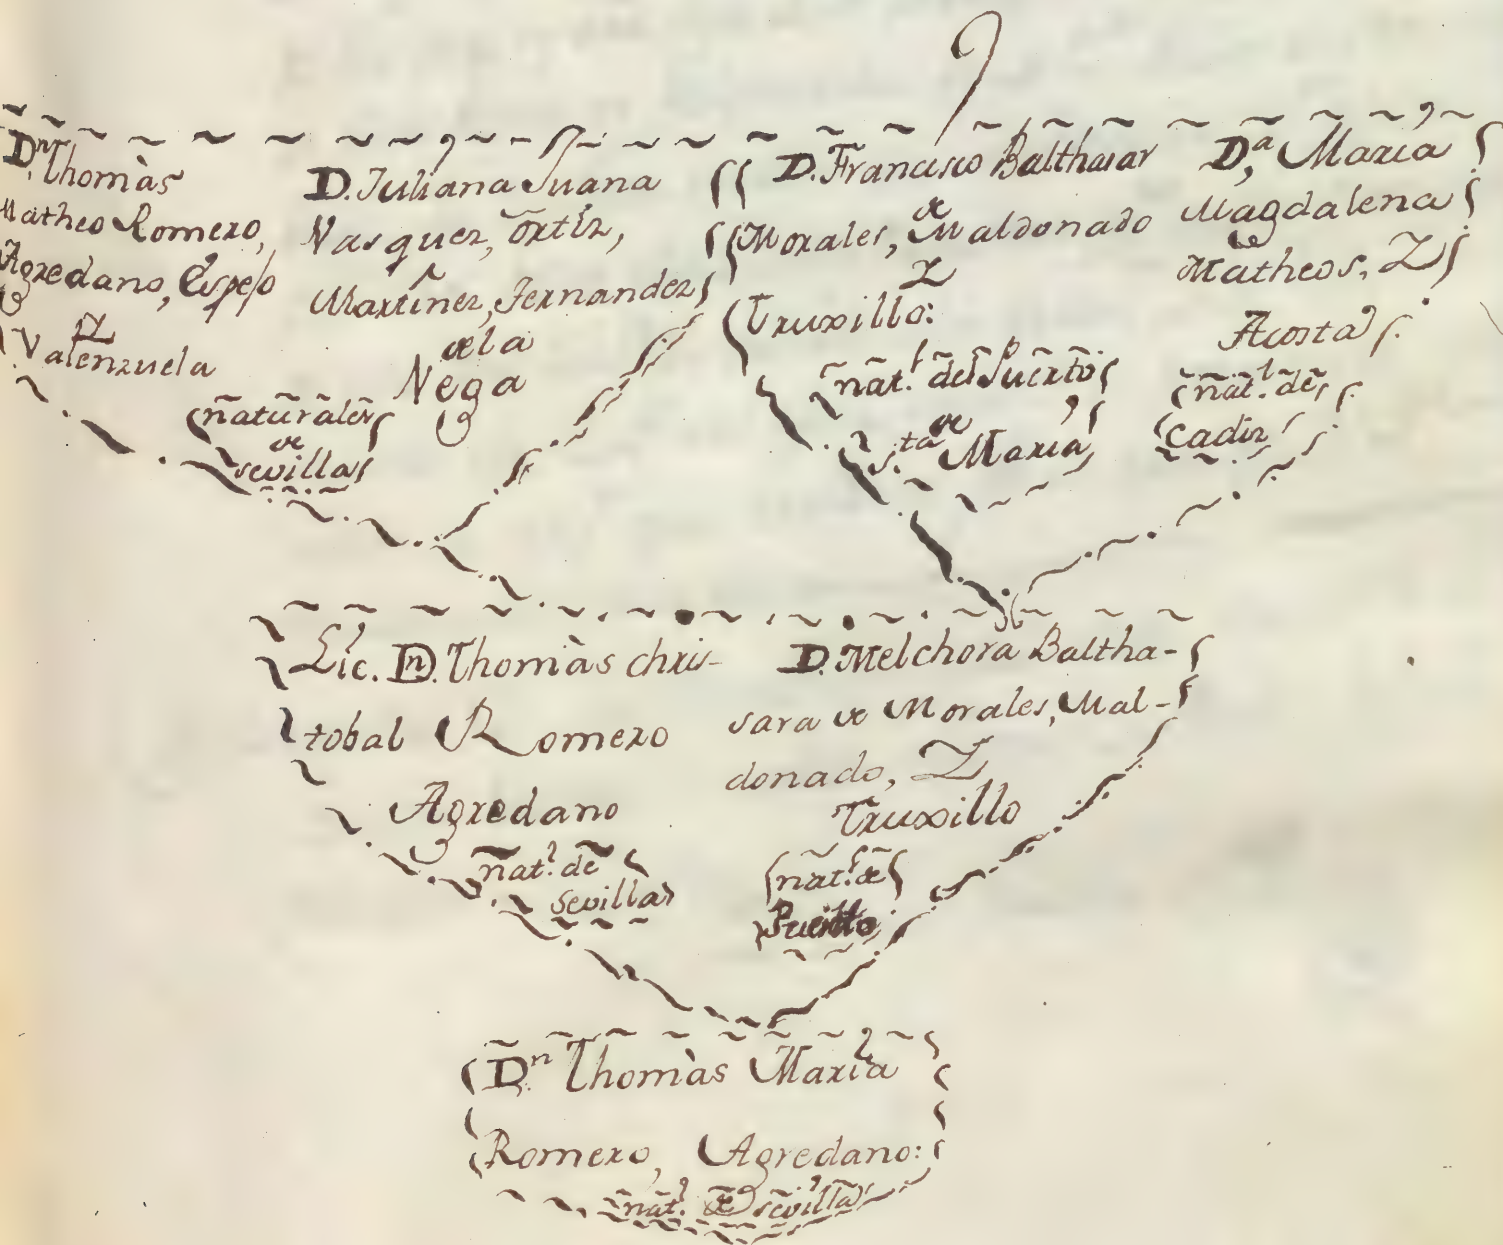 Dn. Thomàs
Matheo Romero,
Agredano, Espejo
Z
Valenzuela
D. Juliana Juana
Vasquez, Ortiz,
Martinez, Fernandez
de la
Vega
naturales
de
sevilla
D. Francisco Balthasar
de
Morales, Maldonado
Z
Truxillo:
nat.l del Puerto
de
S.ta Maria
D.a Maria
Magdalena
de
Matheos, Z
Acosta
nat.l de
Cadiz
Lic. Dn. Thomàs chris-
tobal Romero
Agredano
nat.l de
sevilla
D. Melchora Baltha-
sara de Morales, Mal-
donado, Z
Truxillo
nat.l de
Puerto
Dn. Thomàs Maria
Romero, Agredano:
nat.l de sevilla